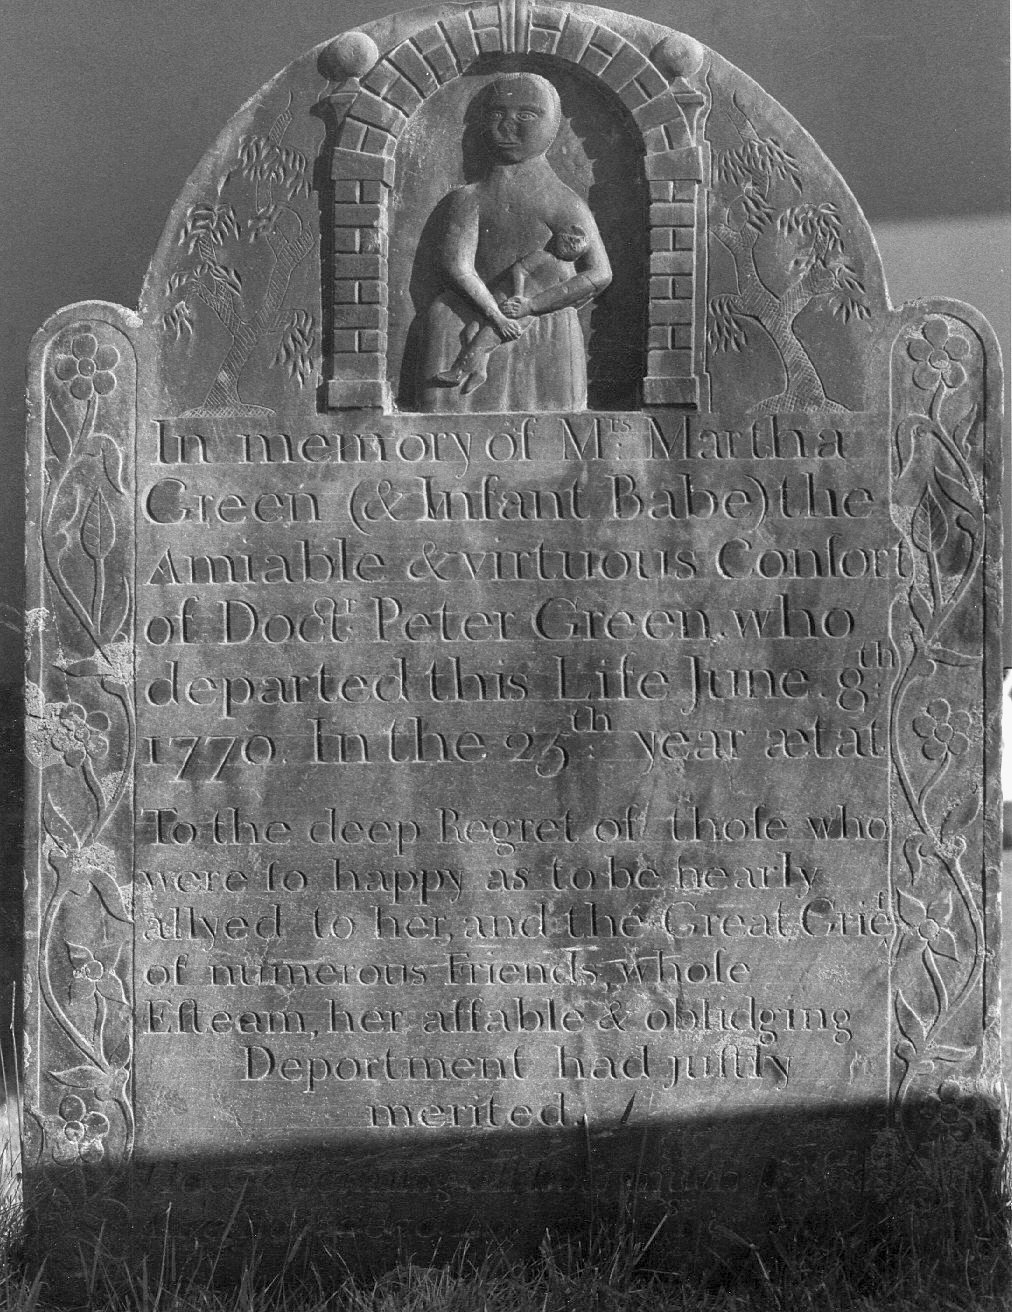 In memory of Mrs Martha
Green (& Infant Babe) the
Amiable & virtuous Conſort
of Doct.r Peter Green, who
departed this Life June 8th
1770. In the 25th. year aetat
To the deep Regret of thoſe who
were ſo happy as to be nearly
allyed to her, and the Great Grief
of numerous Friends, whoſe
Eſteem, her affable & obliding
Deportment had juſtly
merited.